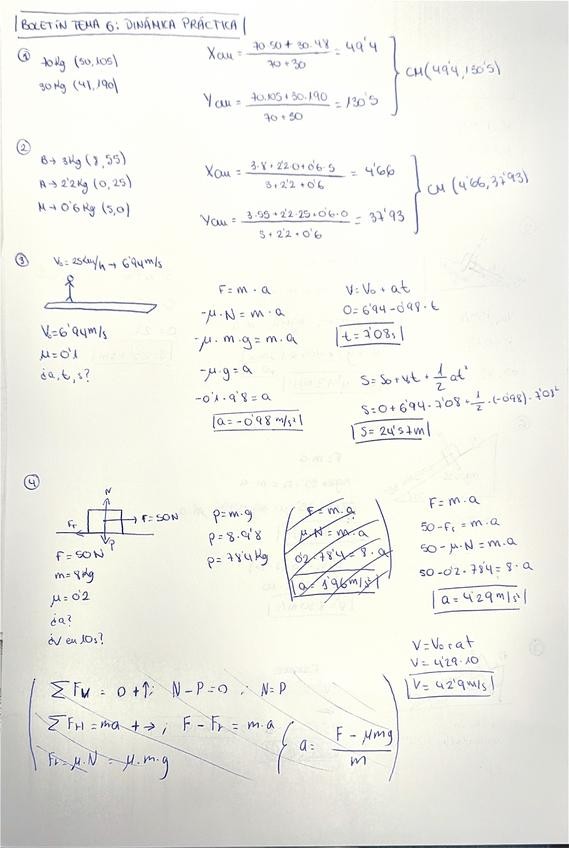 BOLETÍN TEMA 6: DINÁMICA PRÁCTICA
① 70Kg (50,105)
30Kg (41,190)
Xcm = 70·50+30·48 / 70+30 = 49'4
Ycm = 70·105+30·190 / 70+30 = 130'5
CM(49'4,130'5)
②
B→ 3Kg (8,55)
A→ 2'2Kg (0,25)
M→ 0'6Kg (5,0)
Xcm = 3·8+2'2·0+0'6·5 / 3+2'2+0'6 = 4'66
Ycm = 3·55+2'2·25+0'6·0 / 3+2'2+0'6 = 37'93
CM (4'66,37'93)
③ V₀=25Km/h → 6'94m/s
V₀=6'94m/s
μ=0'1
¿a,t,s?
F=m·a
-μ·N=m·a
-μ·m·g=m·a
-μ·g=a
-0'1·9'8=a
a=-0'98m/s²
V=V₀+at
0=6'94-0'98·t
t=7'08s
S=S₀+V₀t+1/2 at²
S=0+6'94·7'08+1/2·(-0'98)·7'08²
S=24'57m
④
N
F=50N
Fr
P
F=50N
m=8Kg
μ=0'2
¿a?
¿V en 10s?
P=m·g
P=8·9'8
P=78'4Kg
F=m·a
μ·N=m·a
0'2·78'4=8·a
a=1'96m/s²
F=m·a
50-Fr=m·a
50-μ·N=m·a
50-0'2·78'4=8·a
a=4'29m/s²
V=V₀+at
V=4'29·10
V=42'9m/s
∑Fv = 0 +↑; N-P=0; N=P
∑FH=ma +→; F-Fr=m·a
Fr=μ·N=μ·m·g
a= F-μmg / m